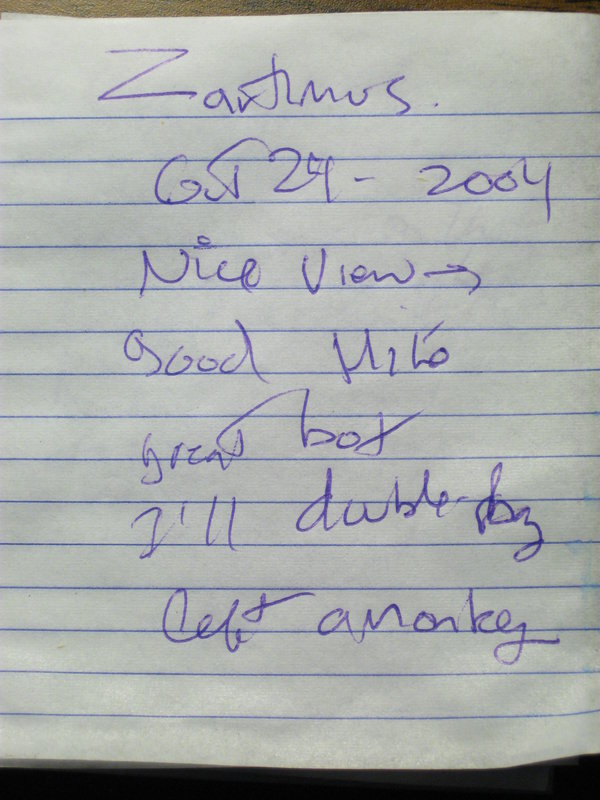 Zartimus.
Oct 24 - 2004
Nice View →
Good Hike
great box
I'll double-bag
left a monkey